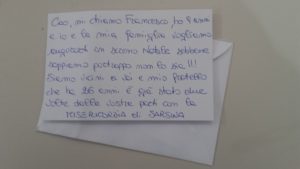 Ciao, mi chiamo Francesco, ho 9 anni
e io e la mia famiglia vogliamo
augurarvi un sereno Natale sebbene
sappiamo purtroppo non lo sia!!!
Siamo vicini a voi e mio fratello
che ha 26 anni è già stato due
volte dalle vostre parti con la
MISERICORDIA di SARSINA